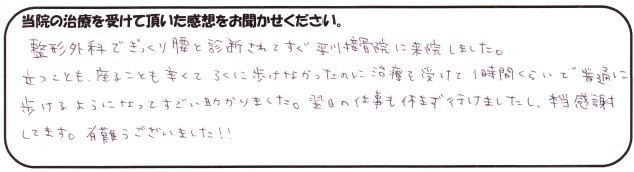 当院の治療を受けて頂いた感想をお聞かせください。
整形外科でぎっくり腰と診断されてすぐ平川接骨院に来院しました。
立つことも、座ることも辛くて ろくに歩けなかったのに治療を受けて1時間くらいで普通に
歩けるようになってすごい助かりました。翌日の仕事も休まず行けましたし、本当感謝
してます。有難うございました!!